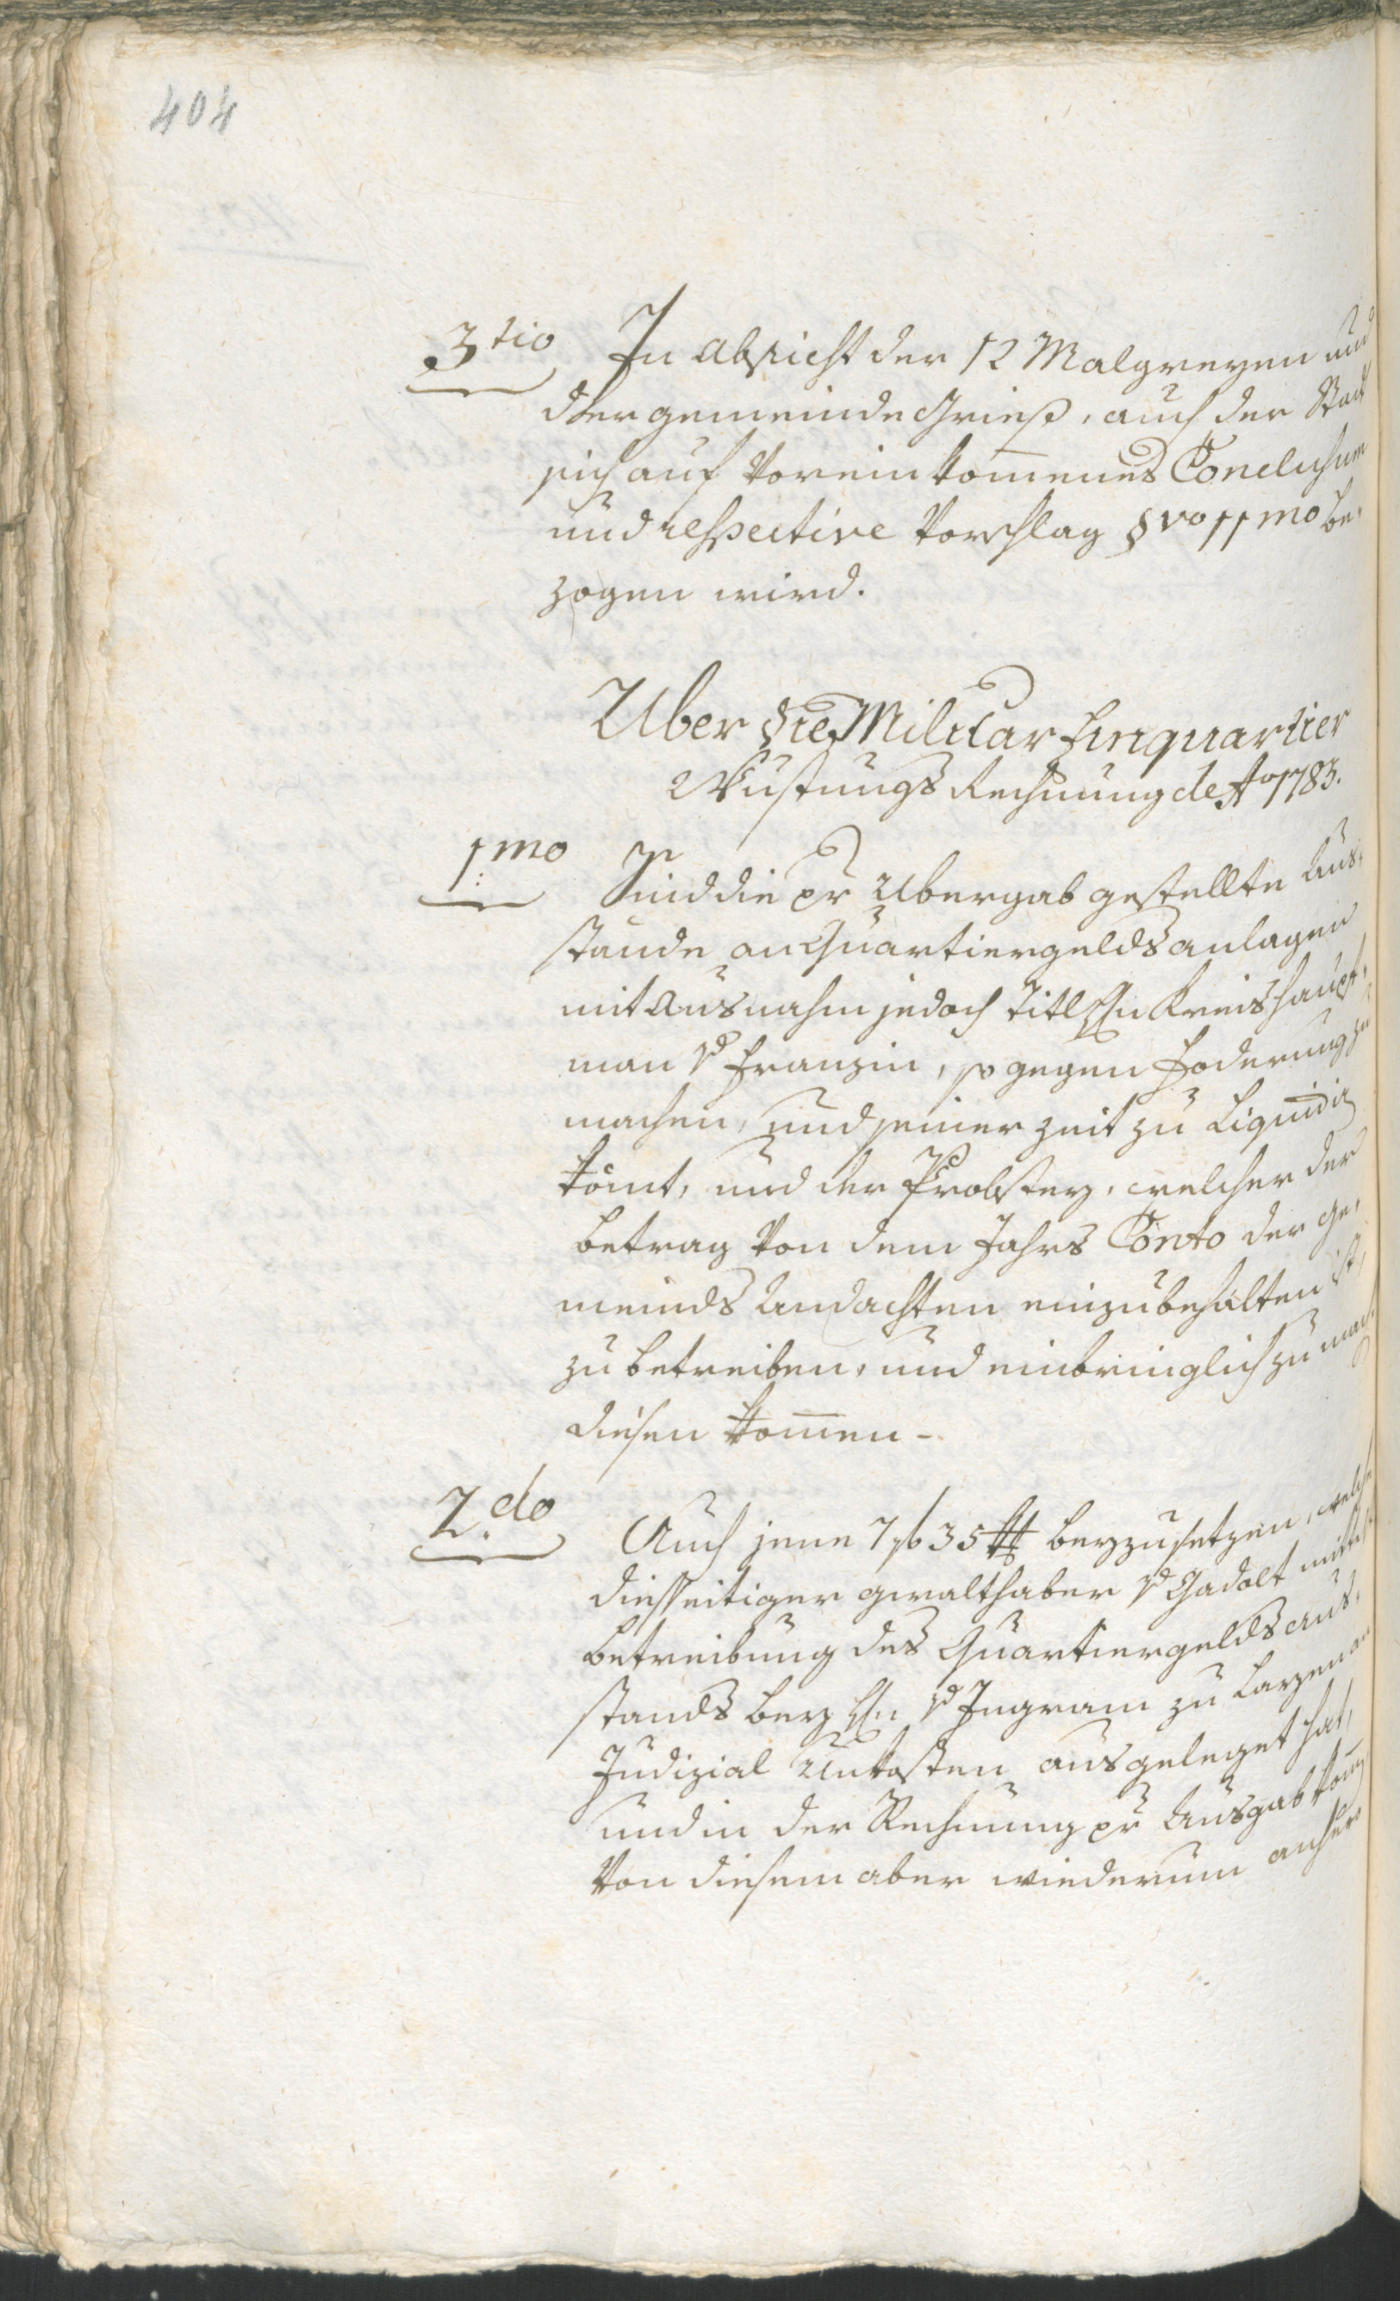 404
3tio In Absicht der 12 Malgreyen und
der gemeinde Grieß, auch der Stadt
sich auf Voreinkom̅enes Conclusum
und respective Vorschlag §vo 11mo be¬
zogen wird.
Uber die Militar Einquartier
Rustungs Rechnung de Ao 1783.
1mo Sind die pr Ubergab gestellte Aus¬
stände an Quartiergelds anlagen
mit Ausnahm jedoch titl Hn Kreishaupt¬
man v Franzin, so gegen Foderung zu
machen, und seiner zeit zu Liquidirn
kom̅t, und der Probstey, welcher der
betrag Von dem Jahrs Conto der ge¬
meinds Andachten einzubehalten ist,
zu betreiben, und einbringlich zu mach
diesen kom̅en -
2do Auch jene 7 f 35 xr beyzusetzen, welche
diesseitiger gewalthaber v Gadolt mittls
betreibung des Quartiergelds aus¬
stands bey Hn v Ingram zu Layen an
Judizial Unkosten ausgeleget hat,
und in der Rechnung pr Ausgab kom̅t
Von diesem aber wiederum anhero